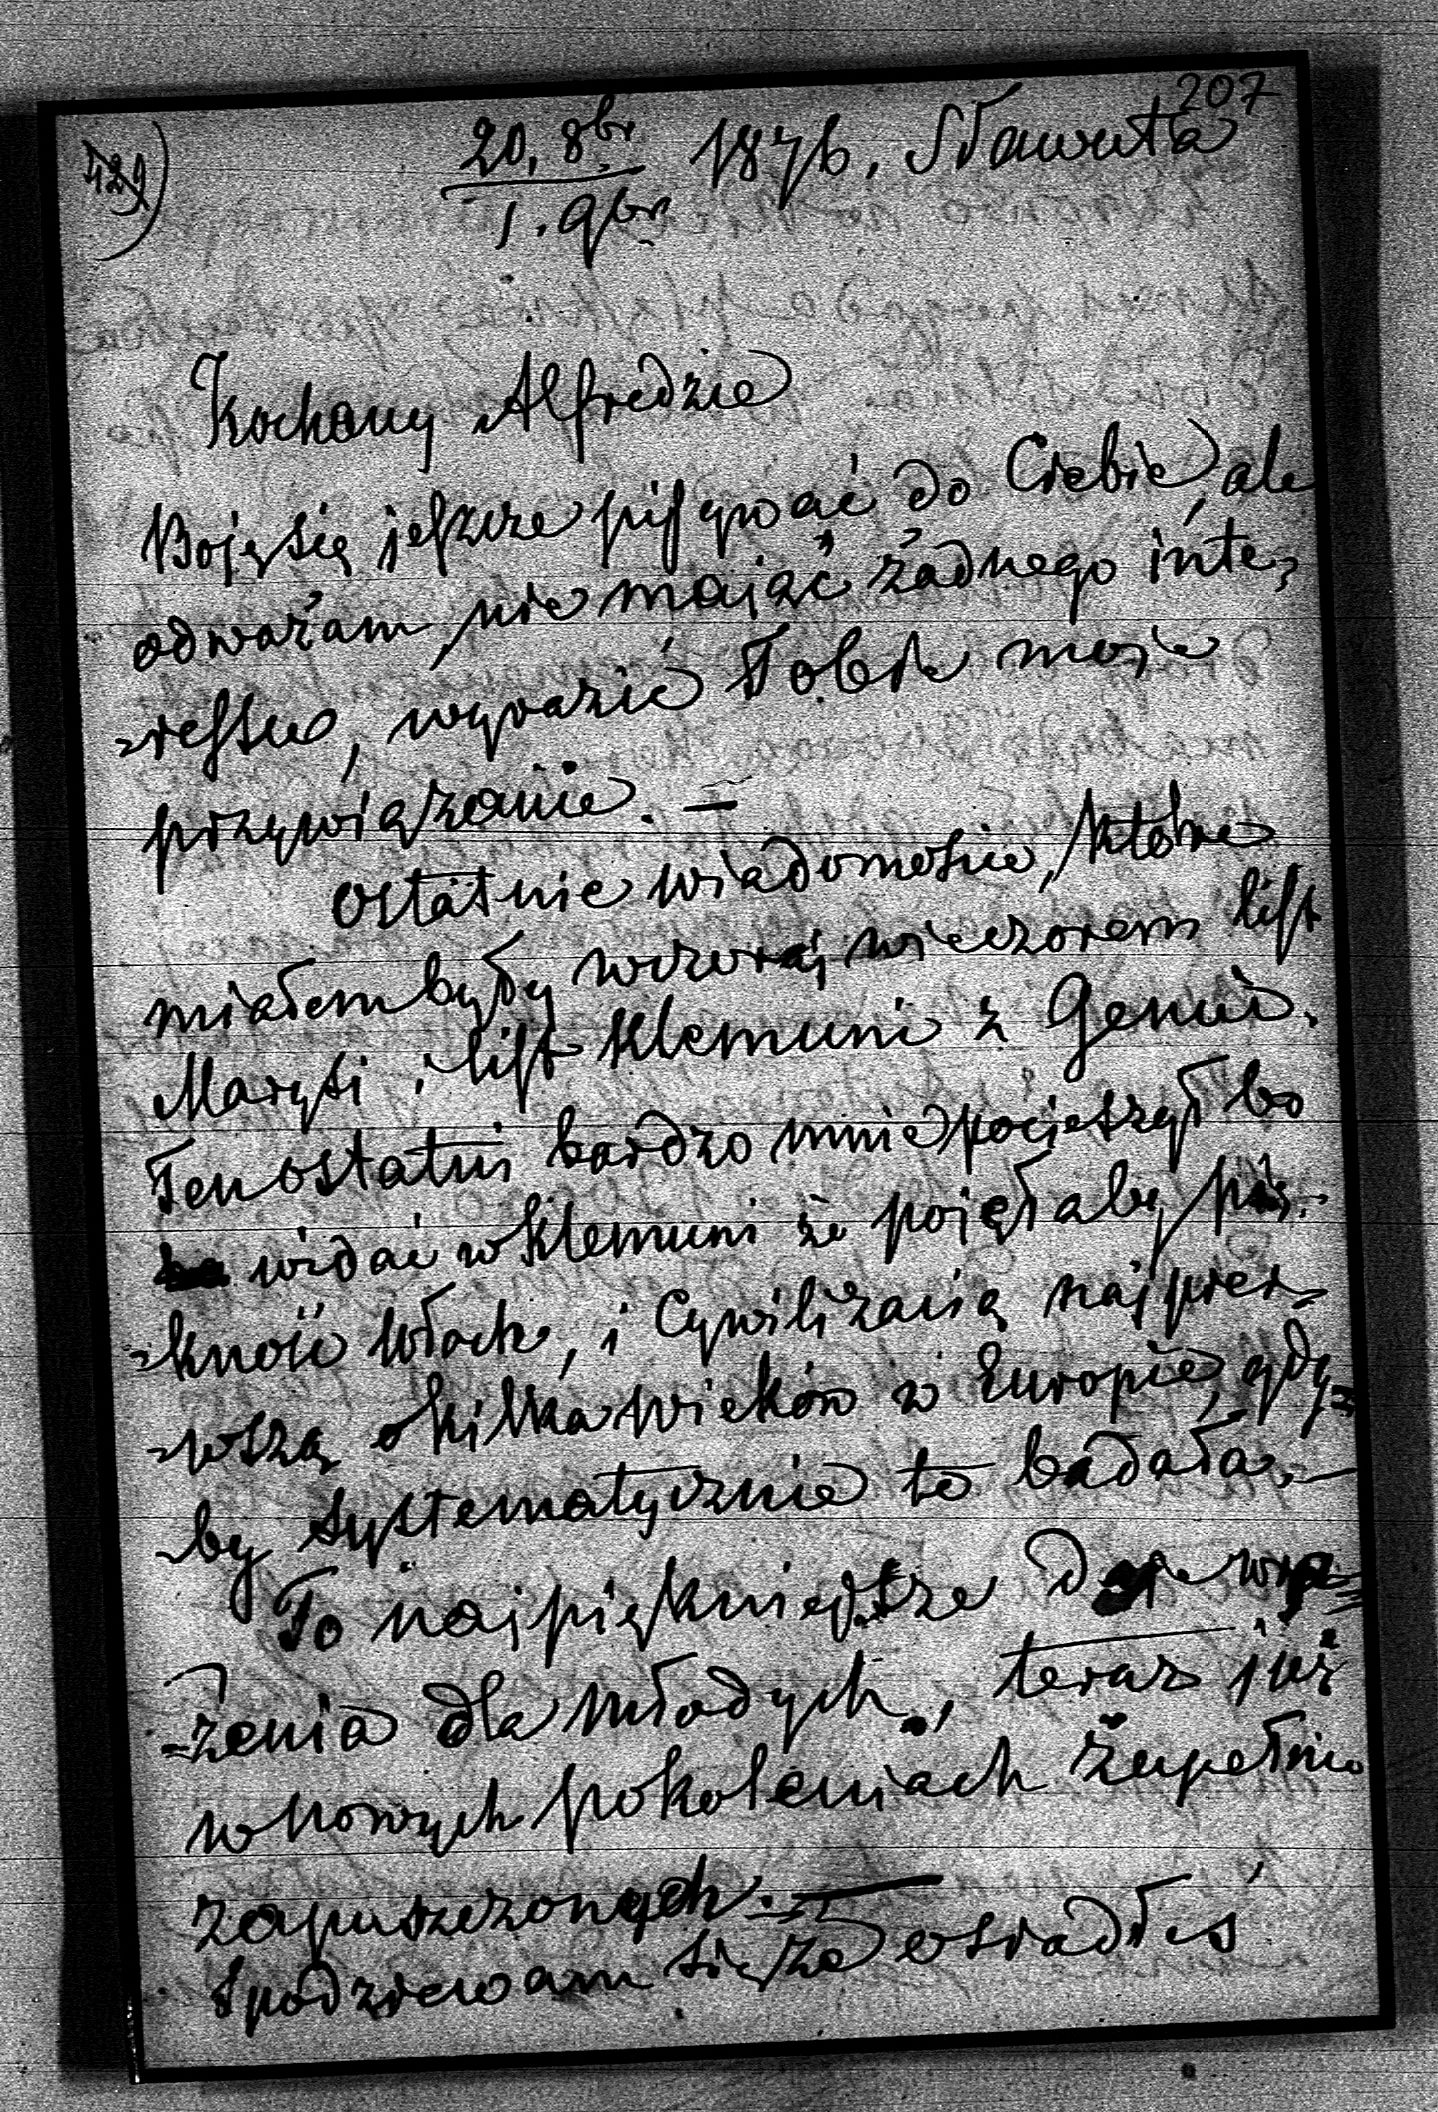 207
429)
20. 8br 1876. Sławuta
1. 9br
Kochany Alfredzie
Boję się jeszcze pisywać do Ciebie, ale
odważam, nie mając żadnego inte-
-ressu, wyrazić Tobie moje
przywiązanie. —
Ostatnie wiadomoście, które
miałem były wczoraj wieczorem list
Marysi i list Klemuni z Genui.
Ten ostatni bardzo mnie pocieszył bo
widać w Klemuni że pojęła by pię-
-kność Włoch, i Cywilizacią najpier-
-wszą o kilka wieków w Europie, gdy-
-by systematycznie to badała. —
To najpiękniejsze wra-
-żenia dla młodych, teraz już
w nowych pokoleniach zupełnie
zapuszczonych. —
Spodziewam się że osiadłeś